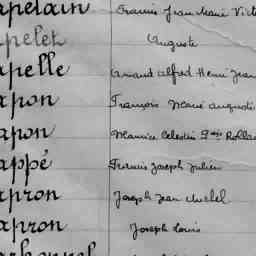 apelain Francis Jean Marie Vict
apelet Auguste
apelle Armand Alfred Henri Jean
apon François Marie Auguste
apon Maurice Celestin
appé Francis Joseph Julien
apron Joseph Jean Michel
apron Joseph Louis
arbonnel